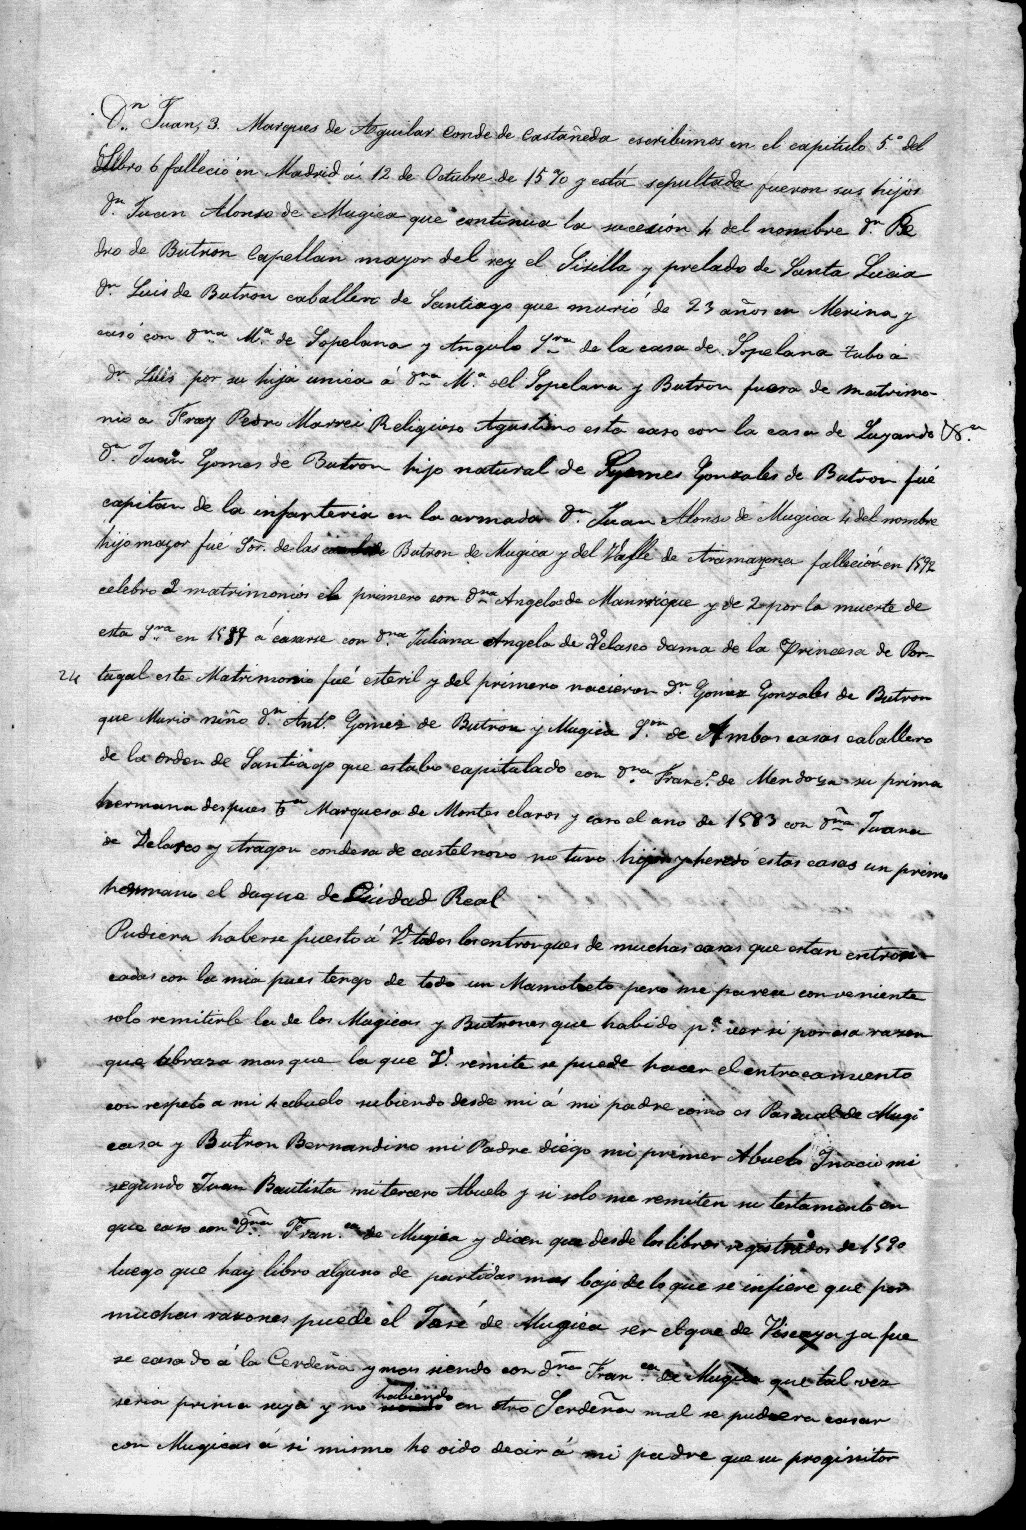 Dn Juan, 3. Marques de Aguilar Conde de Castañeda escribimos en el capitulo 5.° del
Libro 6 falleció en Madrid á 12 de Octubre de 1570 y está sepultada fueron sus hijos
dn. Juan Alonso de Mugica que continua la sucesión 4 del nombre dn. Pe
dro de Butron Capellan mayor del rey el Sisilla y prelado de Santa Lucia
dn. Luis de Butron caballero de Santiago que murió de 23 años en Merina y
casó con dna. Ma. de Sopelana y Angulo Sra de la casa de Sopelana tubo a
dn. Luis por su hija unica á dna Ma. del Sopelana y Butron fuera de matrimo-
nio a Fray Pedro Marrei Religioso Agustino esta caso con la casa de Luyando
dn. Juan Gomes de Butron hijo natural de Gonzales de Butron fué
capitan de la infanteria en la armada dn. Juan Alonso de Mugica 4 del nombre
hijo mayor fué Sor. de las Butron de Mugica y del Valle de Aramayona falleción en 1592
celebro 2 matrimonios el primero con dna Angela de Manrrique y de 2° por la muerte de
esta Sra en 1587 á casarse con dna Juliana Angela de Velasco dama de la Princesa de Por-
24 tugal este Matrimonio fué esteril y del primero nacieron dn Gomez Gonzales de Butron
que Murio niño dn. Anto. Gomez de Butron y Mugica Sor. de Ambas casas caballero
de la orden de Santiago que estabo capitulado con dna. Franca. de Mendoza su prima
hermana despues Marquesa de Montes claros y caso el ano de 1583 con dña Juana
de Velasco y Aragon condesa de castelnovo no tuvo hijos y heredó estas casas un primo
hermano el duque de Ciudad Real
Pudiera haberse puesto á V. todos los entronques de muchas casas que estan entron-
cadas con la mia pues tengo de todo un Mamotreto pero me parece conveniente
solo remitirle la de los Mugicas y Butrones que habido pa. ver si por esa razon
que abraza mas que la que V. remite se puede hacer el entrocamiento
con respeto a mi 4 abuelo subiendo desde mi á mi padre como es Pascual de Mugi
casa y Butron Bernardino mi Padre diego mi primer Abuelo Inacio mi
segundo Juan Bautista mi tercero Abuelo y si solo me remiten su testamento en
que caso con dña. Fran.ca de Mugica y dicen que desde los libros registrados de 1590
luego que hay libro alguno de partidas mas bajo de lo que se infiere que por
muchas razones puede el José de Mugica ser el que de Viscaya ya fue
se casado á la Cerdeña y mas siendo con dña Fran.ca de Mugica que tal vez
seria prima suya y no habiendo en otro Serdeña mal se pudiera casar
con Mugicas á si mismo he oido decir á mi padre que su proginitor